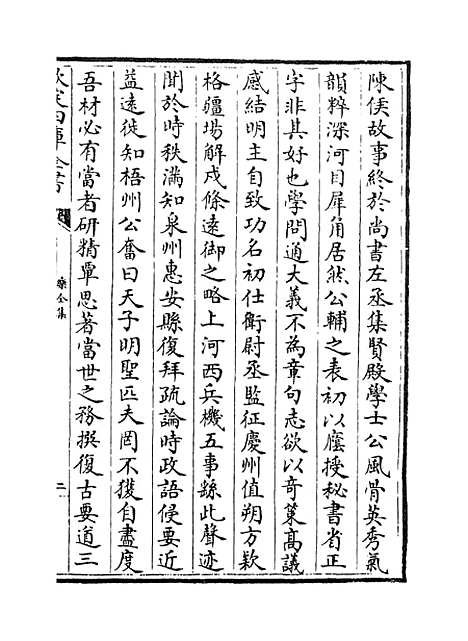 陳侯故事終於尚書左丞集賢殿學士公風骨英秀氣
韻粹深河目犀角居然公輔之表初以廕授秘書省正
字非其好也學問通大義不為章句志欲以奇策高議
感結明主自致功名初仕衛尉丞監征慶州值朔方欵
格疆場解戍條遠御之略上河西兵機五事繇此聲迹
聞於時秩滿知泉州惠安縣復拜疏論時政語侵要近
益遠徙知梧州公奮曰天子明聖匹夫罔不獲自盡度
吾材必有當者研精覃思著當世之務撰復古要道三
欽定四庫全書
樂全集
二